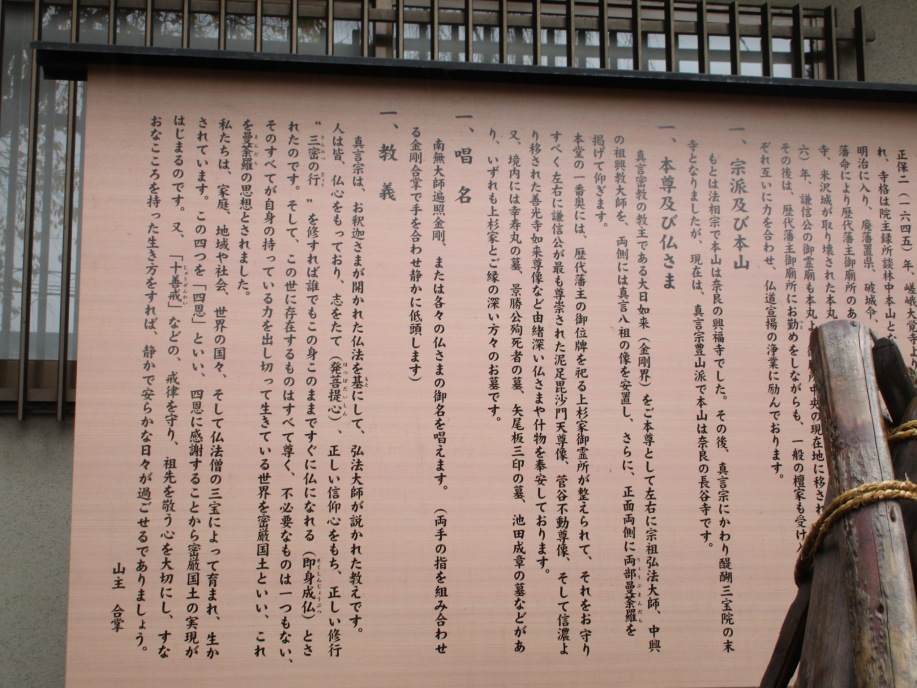 正保二(一六四五)年、嵯峨大覚寺より
れ、寺格は院主録所談林中本山と
明治に入り、廃藩置県、破城令、
藩命により歴代藩主御廟所のあ
寺、米沢城が取り壊された本丸
六)年、謙信公の御霊廟も本丸
その後は、歴代藩主御廟所にお勤めをしながらも、一般の檀家も受け入
ぞれ互いに力を合わせ、仏道宣揚の浄業に励んでおります。
一、宗派及び本山
もとは法相宗で本山は奈良の興福寺でした。その後、真言宗にかわり醍醐三宝院の末
寺となりましたが、現在は、真言宗豊山派で本山は奈良の長谷寺です。
一、本尊及び仏さま
真言密教の教主である大日如来(金剛界)をご本尊として左右に宗祖弘法大師、中興
の祖興教大師を、両側には真言八祖の像を安置し、さらに、正面両側に両部曼荼羅を
掲げて仰ぎます。
本堂の一番奥には、歴代藩主の御位牌を祀る上杉家御霊所が整えられて、それをお守り
すべく左右に謙信公が最も尊崇された泥足毘沙門天尊像、菅谷不動尊像、そして信濃よ
り移された善光寺如来尊像など由緒深い仏さまや什物を奉安しております。
又、境内には幸寿丸の墓、景勝公殉死者の墓、矢尾板三印の墓、池田成章の墓などがあ
り、いずれも上杉家とご縁の深い方々のお墓です。
一、唱名
南無大師遍照金剛、または各々の仏さまの御名を唱えます。(両手の指を組み合わせ
る金剛合掌で手を合わせ静かに低頭します)
一、教義
真言宗は、お釈迦さまが開かれた仏法を基にして、弘法大師が説かれた教えです。
人は皆、仏心をもっており、志をたて(発菩提心)、正しい信仰心をもち、正しい修行
"三密の行"を修すれば誰でもこの身このまますぐに仏になれる(即身成仏)とさ
れたのです。そして、この世に存在するものはすべて尊く、不必要なものは一つもない、
そのすべてが自身の持っている力を出し切って生きている世界を密厳国土といい、これ
を曼荼羅の思想とされました。
私たちは、家庭、地域や社会、世界の国々、そして仏法僧の三宝によって育まれ、生か
されています。この四つを「四恩」といい、四恩に感謝することから密厳国土の実現が
はじまるのです。又、「十善戒」などの、戒律を守り、祖先を敬う心を大切にし、すな
おなこころを持った生き方をすれば、静かで安らかな日々が過ごせるでありましょう。
山主 合掌